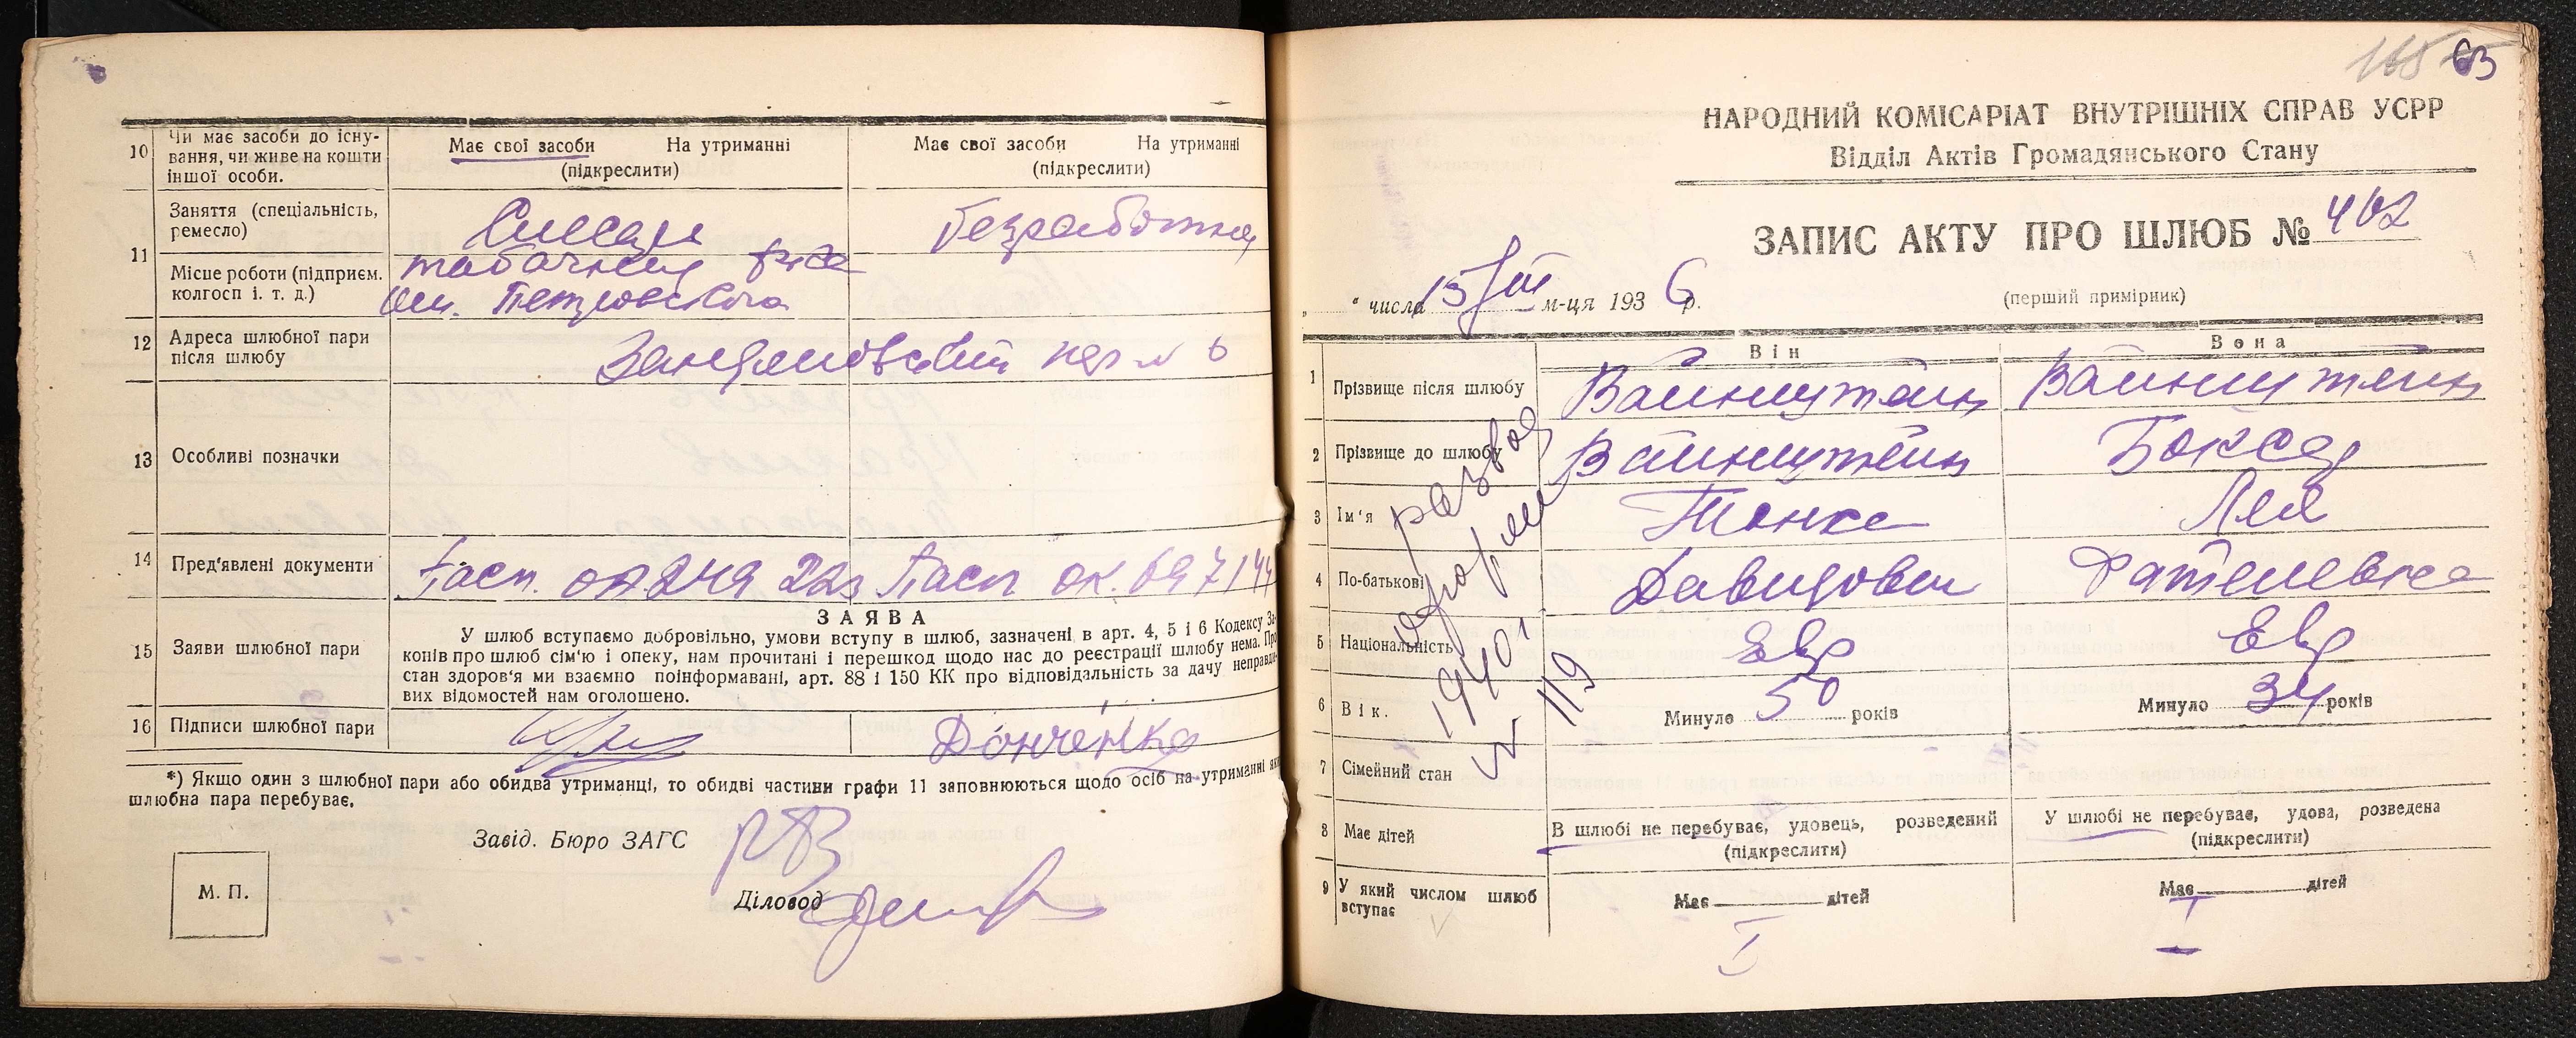 10 Чи має засоби до існу-
вання, чи живе на кошти
іншої особи.
Має свої засоби На утриманні
(підкреслити)
Має свої засоби На утриманні
(підкреслити)
11 Заняття (спеціальність,
ремесло)
Слесарь
Безработная
Місце роботи (підприєм.
колгосп і. т. д.)
табачная ф-ка
им. Петровского
12 Адреса шлюбної пари
після шлюбу
пер № 6
13 Особливі позначки
14 Пред'явлені документи
Пасп. Пасп ок. 697144
15 Заяви шлюбної пари
ЗАЯВА
У шлюб вступаємо добровільно, умови вступу в шлюб, зазначені в арт. 4, 5 і 6 Кодексу За-
конів про шлюб сім'ю і опеку, нам прочитані і перешкод щодо нас до реєстрації шлюбу нема. Про
стан здоров'я ми взаємно поінформавані, арт. 88 і 150 КК про відповідальність за дачу неправди-
вих відомостей нам оголошено.
16 Підписи шлюбної пари
Дончёнко
*) Якщо один з шлюбної пари або обидва утриманці, то обидві частини графи 11 заповнюються щодо осіб на утриманні яки
шлюбна пара перебуває.
Завід. Бюро ЗАГС
М. П.
Діловод
165 63
НАРОДНИЙ КОМІСАРІАТ ВНУТРІШНІХ СПРАВ УСРР
Відділ Актів Громадянського Стану
ЗАПИС АКТУ ПРО ШЛЮБ № 402
" числа 15/III м-ця 1936 р.
(перший примірник)
Він Вона
1 Прізвище після шлюбу Вайнштейн Вайнштейн
2 Прізвище до шлюбу Вайнштейн Боксер
3 Ім'я Лея
4 По-батькові Давидович
5 Національність Евр Евр
6 Вік. Минуло 50 років Минуло 34 років
7 Сімейний стан
8 Має дітей
В шлюбі не перебуває, удовець, розведений
(підкреслити)
У шлюбі не перебуває, удова, розведена
(підкреслити)
9 У який числом шлюб
вступає
Має дітей
I
Має дітей
I
развод
оформлен
1940г
№ 119